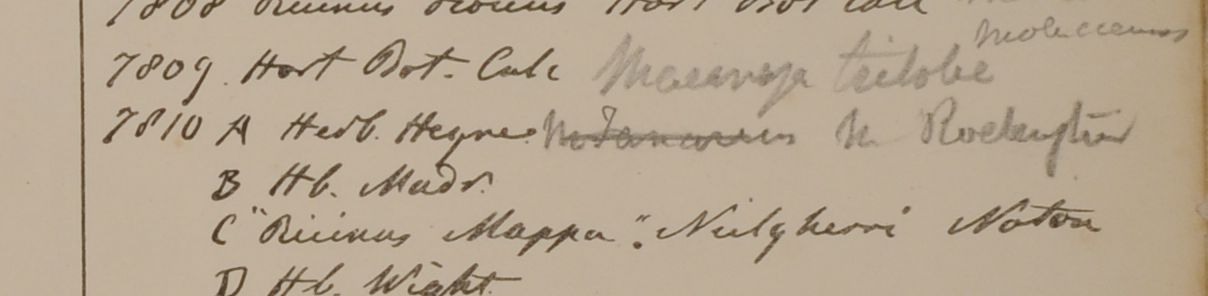 7808 Ricinus dioicus Hort Bot Calc
moluccanus
7809. Hort Bot. Calc Macaranga triloba
7810 A Herb. Heyne. M. Tanarius M Roxburghii
B Hb. Madr.
C "Ricinus Mappa". Neilgherri Noton
D Hb. Wight.